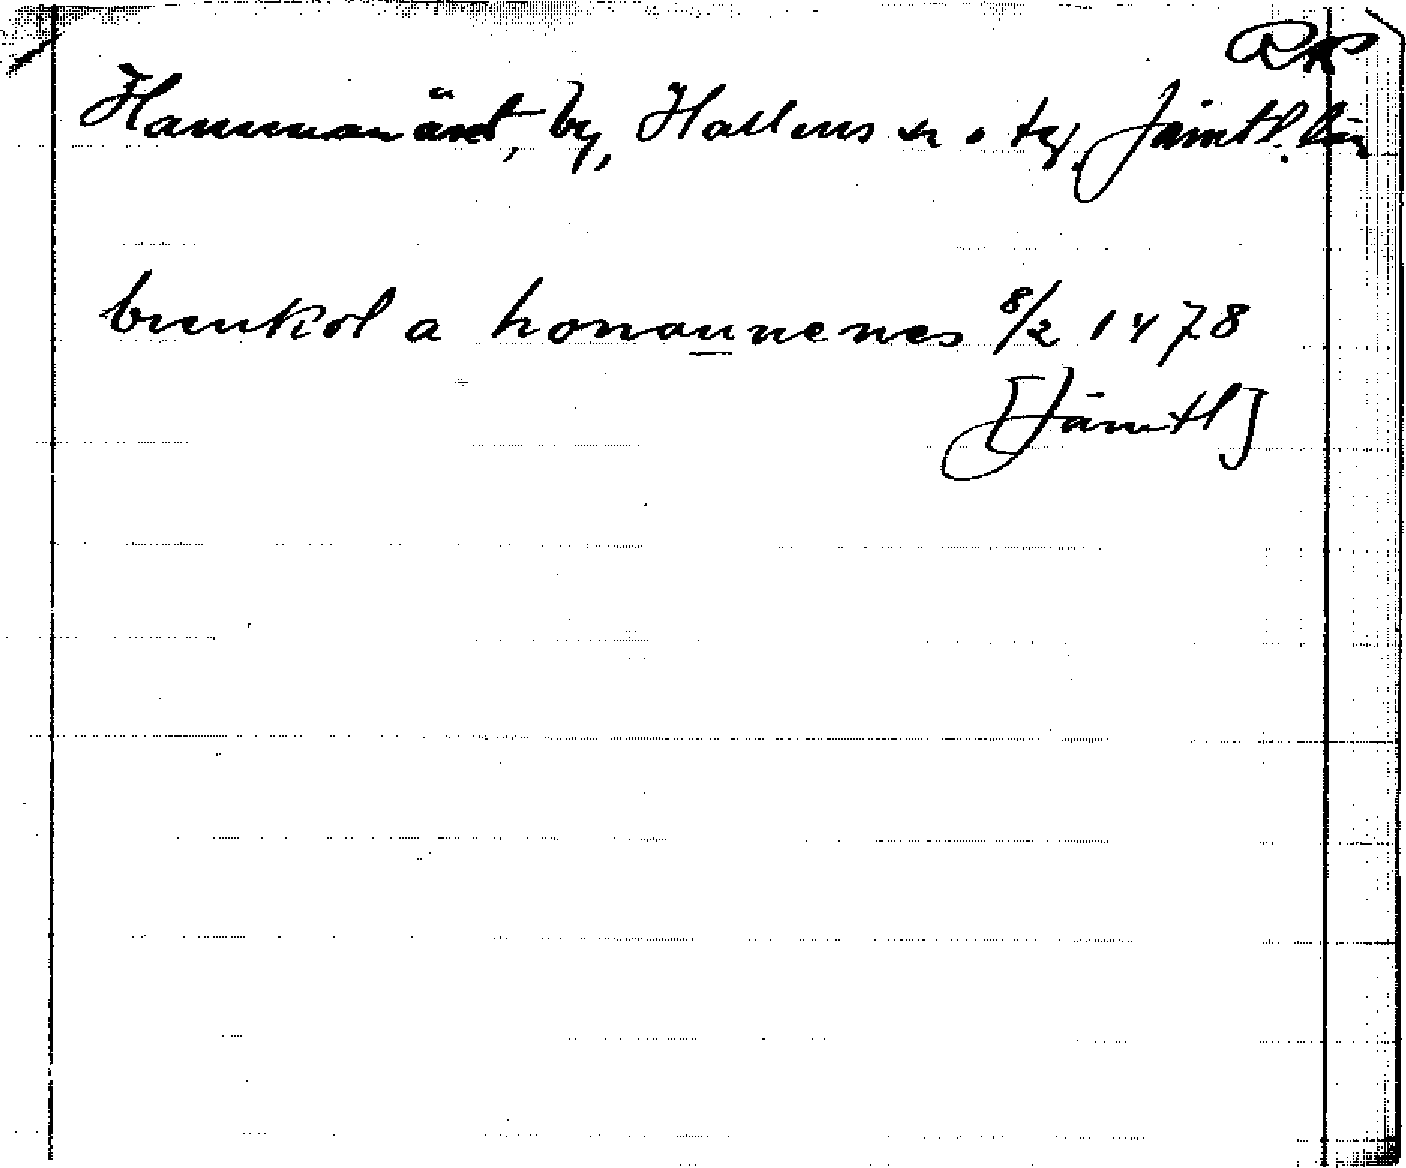 RAP
Hammarnäset, by, Hallens sn o tg, Jämtl. län
brunkol a honaunenes 8/2 1478
[Jämtl]